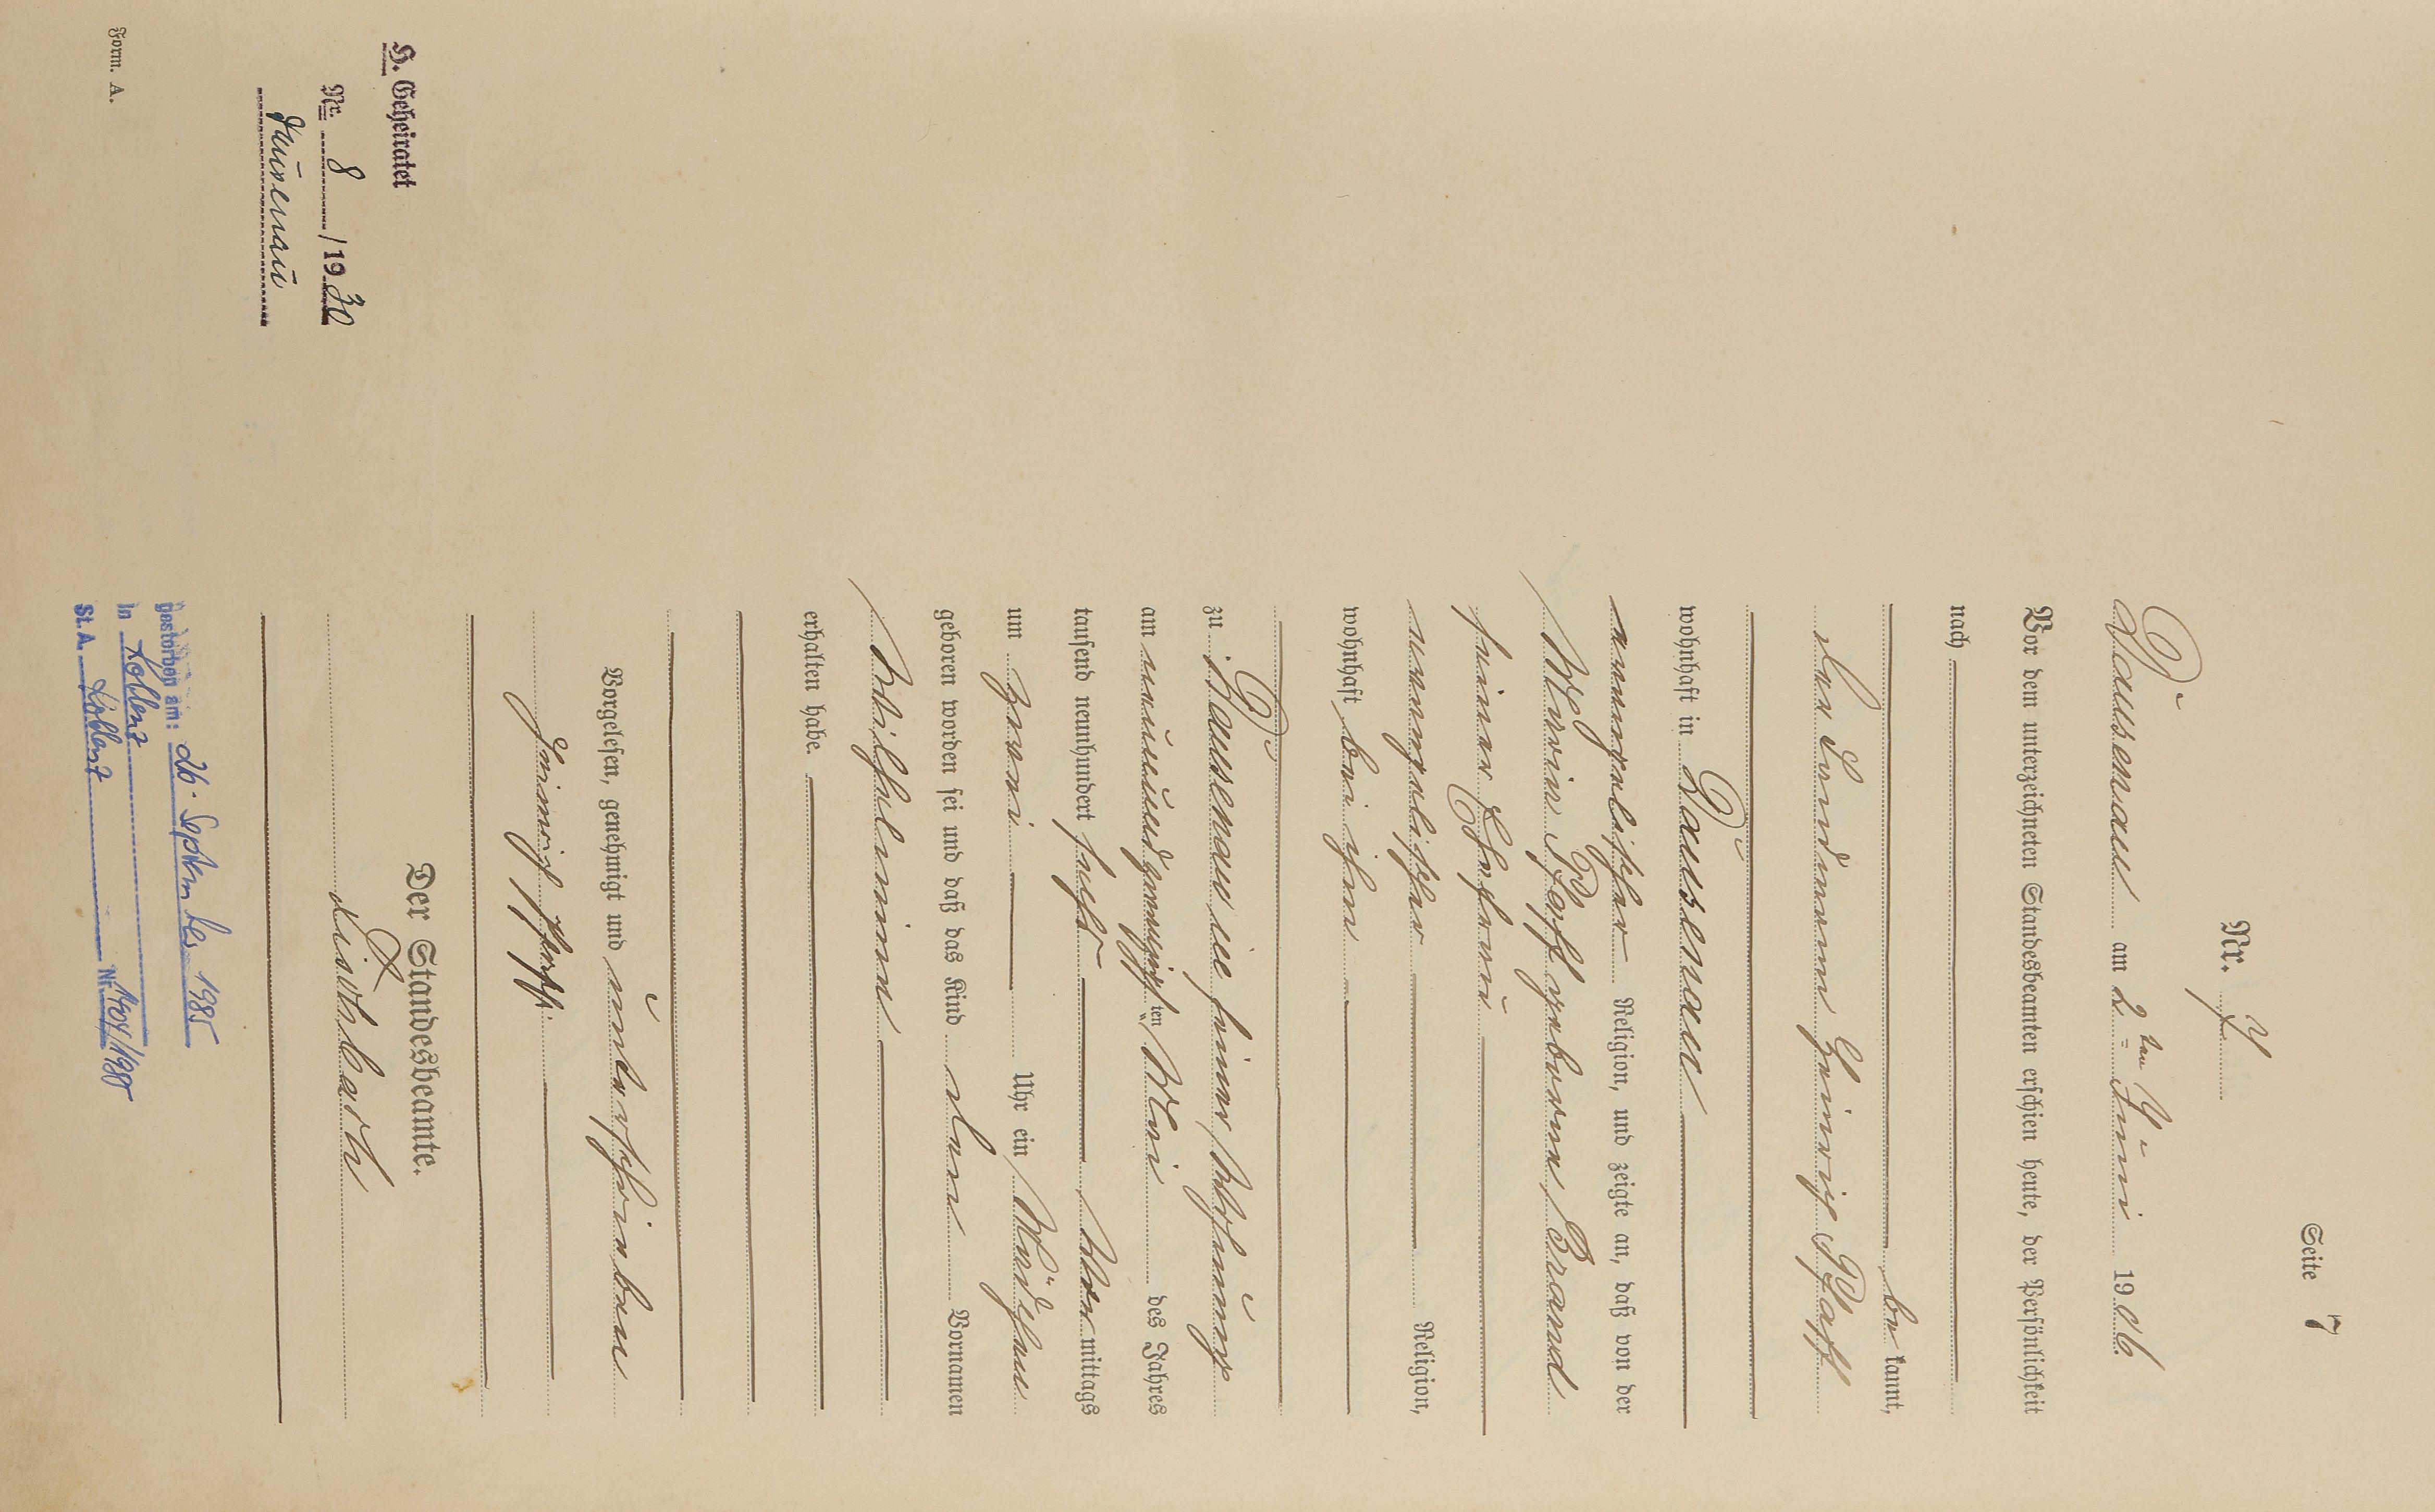 Seite 7
Nr. 7
Dausenau am 2ten Juni 1906
Vor dem unterzeichneten Standesbeamten erschien heute, der Persönlichkeit
nach
be kannt,
der Landmann Heinrich Pfaff
wohnhaft in Dausenau
evangelischer Religion, und zeigte an, daß von der
Maria Pfaff geborene Brand
seiner Ehefrau
evangelischer Religion,
wohnhaft bei ihm
zu Dausenau in seiner Wohnung
am neunundzwanzigsten Mai des Jahres
tausend neunhundert sechs Vor mittags
um zwei Uhr ein Mädchen
geboren worden sei und daß das Kind den Vornamen
Wilhelmine
erhalten habe.
Vorgelesen, genehmigt und unterschrieben
Heinrich Pfaff.
Der Standesbeamte.
H. Geheiratet
Nr. 8 /19 30
Dausenau
Form. A.
gestorben am: 26. September 1985
in Koblenz
St. A. Koblenz Nr. 1404/1985